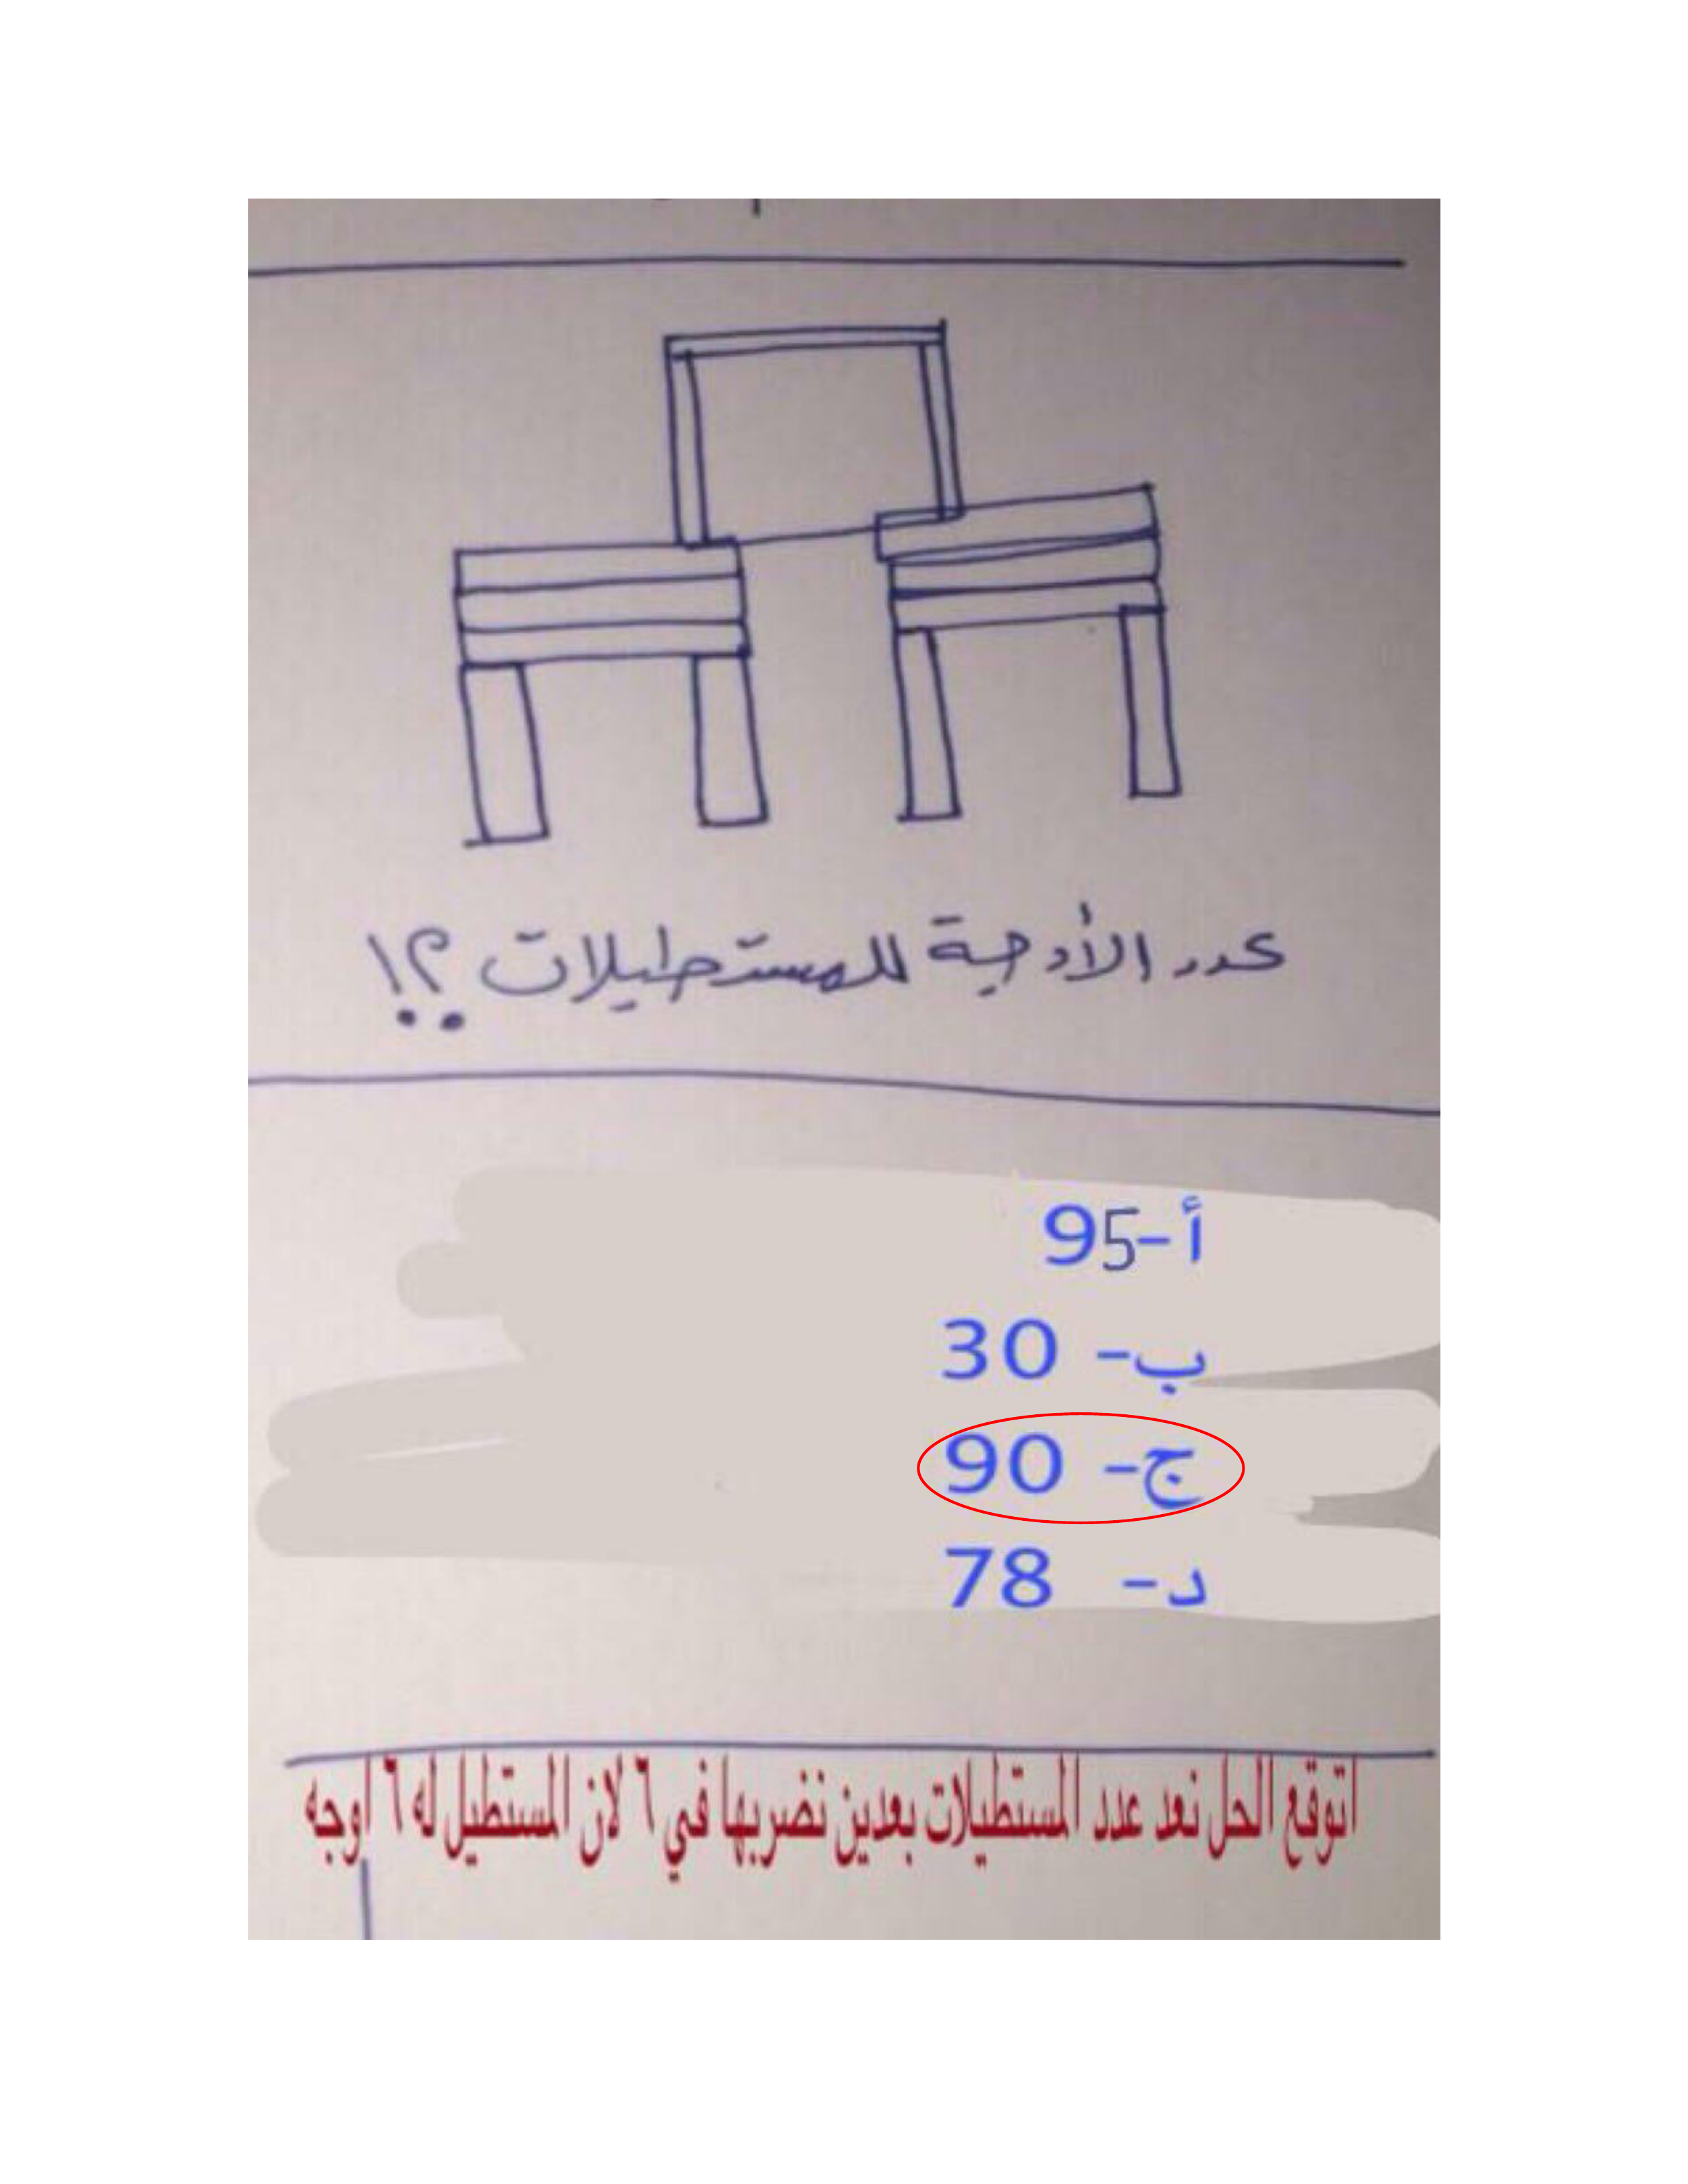 عدد الأوجة للمستطيلات ؟!
أ-95
ب- 30
ج- 90
د- 78
اتوقع الحل نعد عدد المستطيلات بعدين نضربها في ٦ لان المستطيل له ٦ اوجه